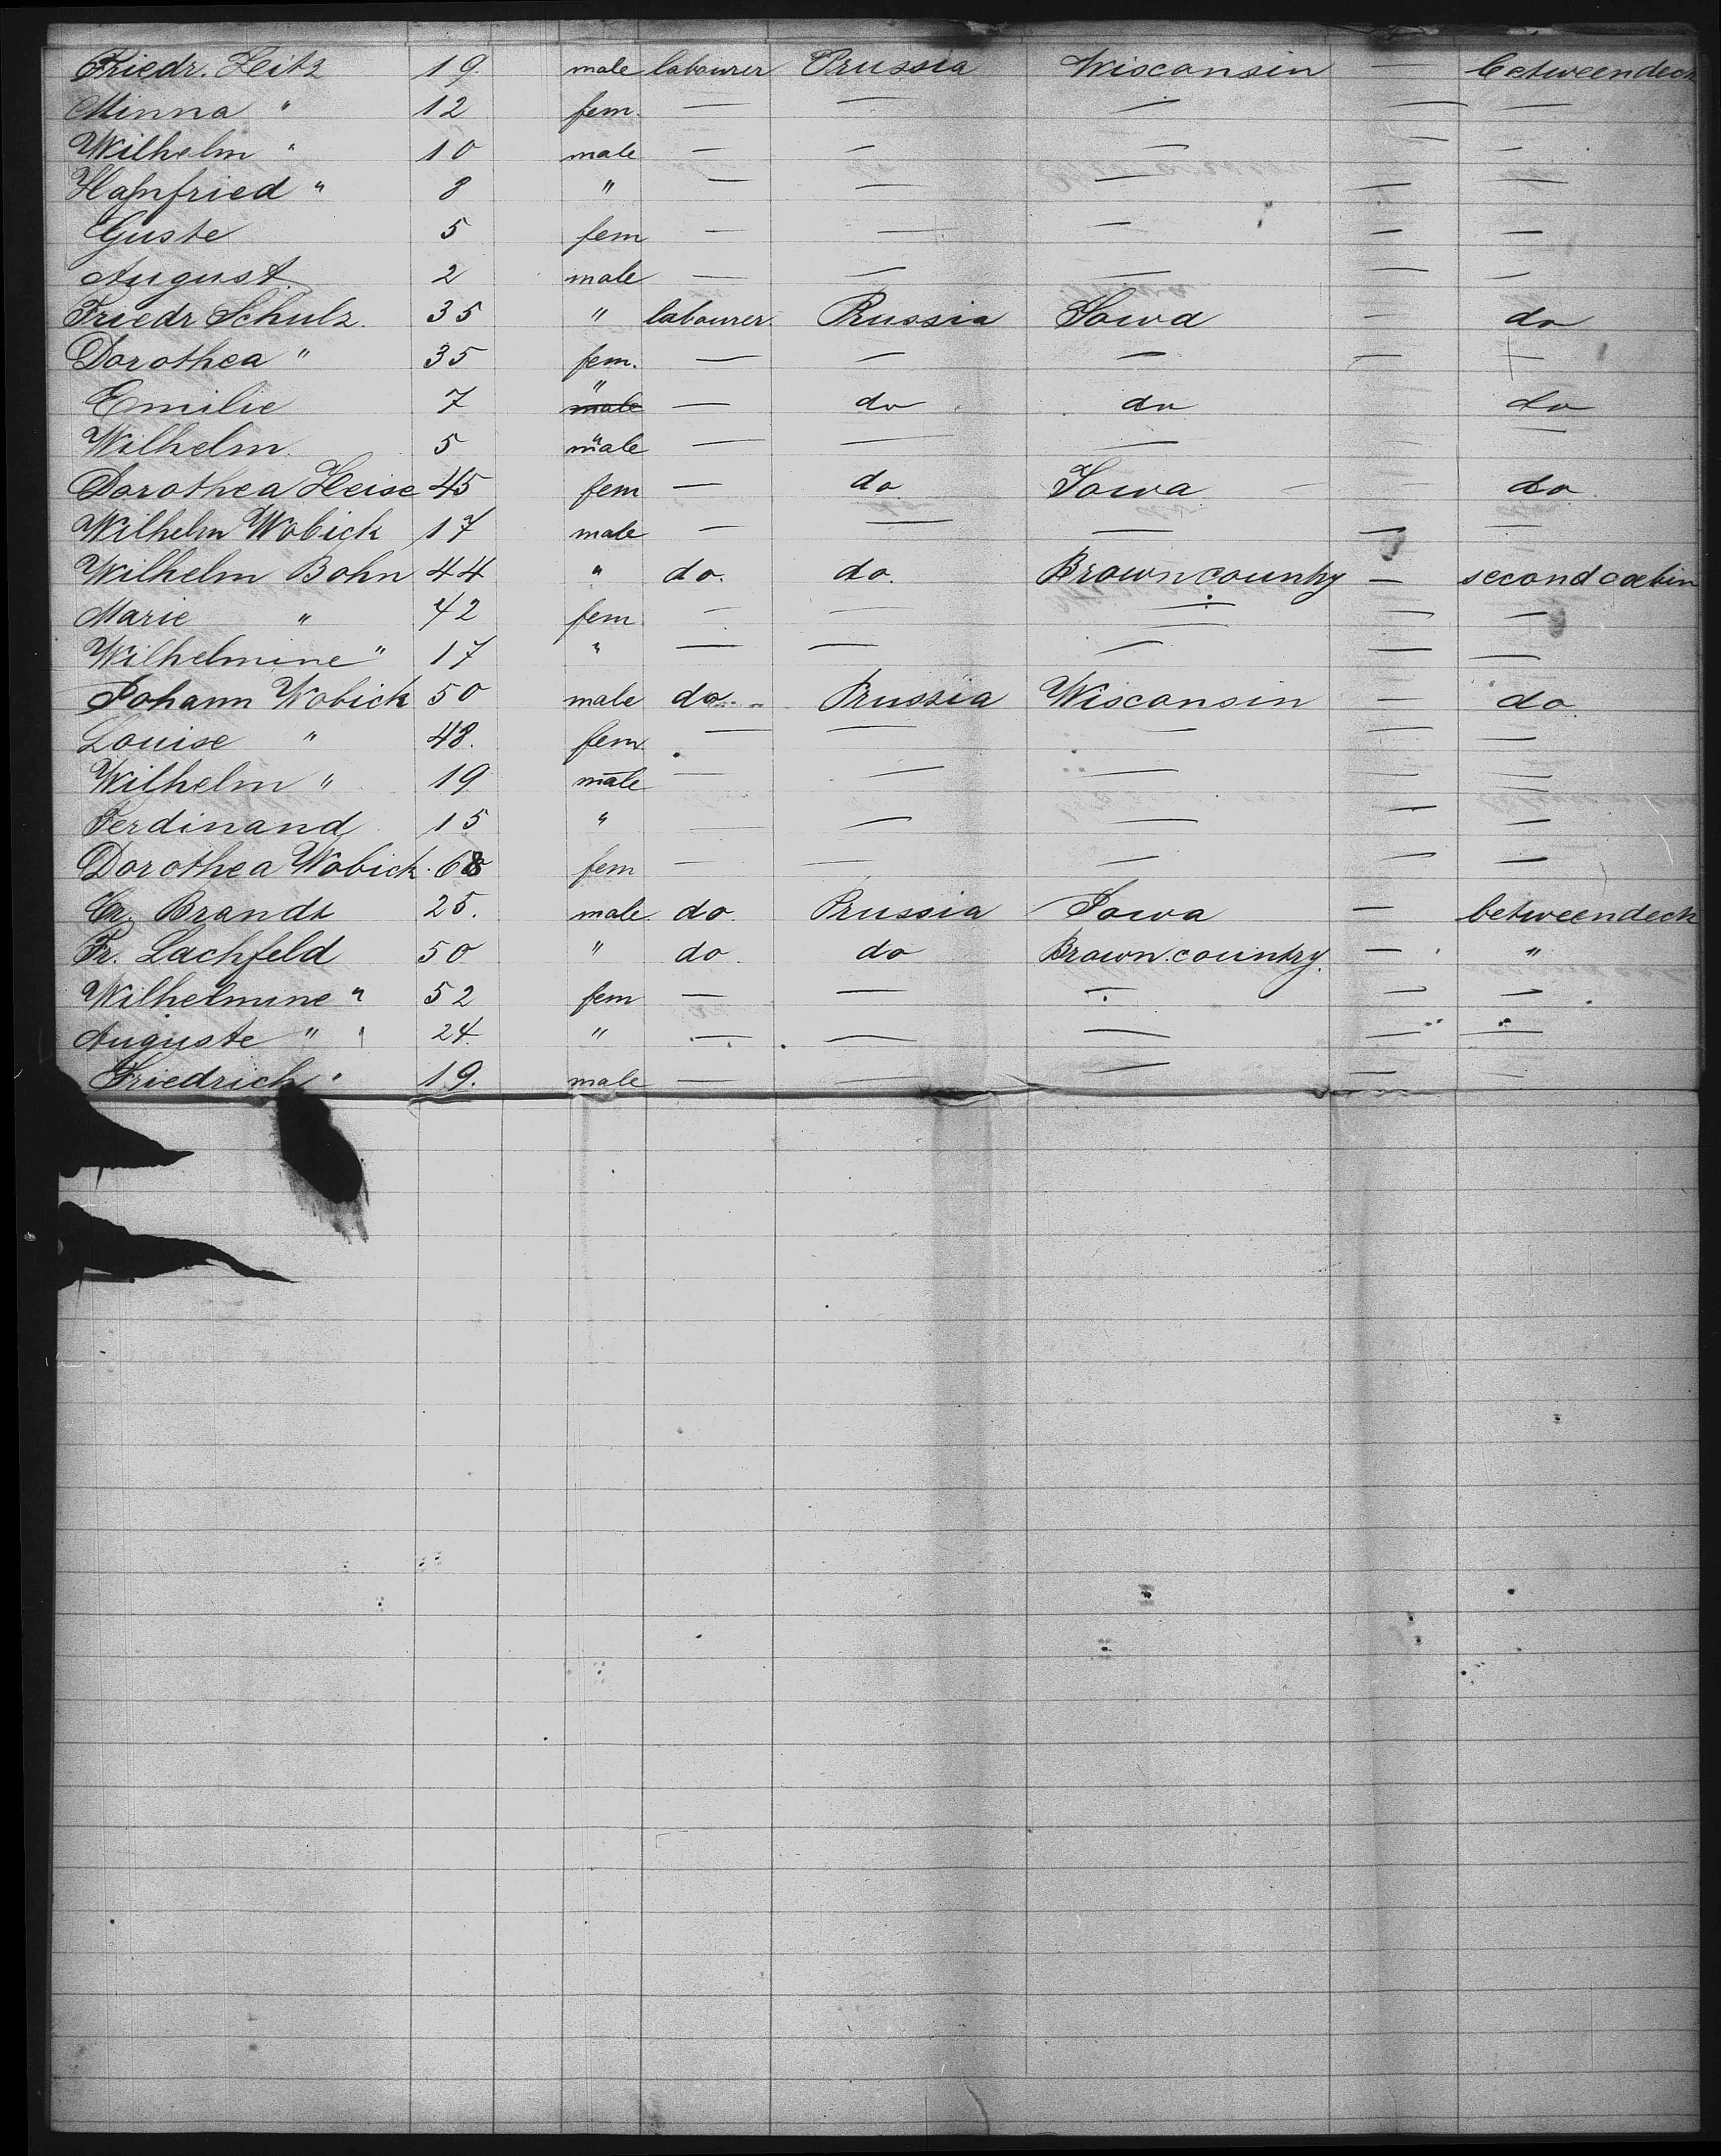 Friedr. Zeitz 19. male labourer Prussia Wisconsin — betweendeck
Minna " 12 fem. — — — — —
Wilhelm " 10 male — — — — —
Hanfried " 8 " — — — — —
Guste 5 fem — — — — —
August. 2 male — — — — —
Friedr Schulz. 35 " labourer. Prussia Iowa — do
Dorothea " 35 fem. — — — —
Emilie 7 " male — do do do
Wilhelm. 5 male — — — —
Dorothea Heise 45 fem — do Iowa do.
Wilhelm Wobick 17 male — — — — —
Wilhelm Bohn 44 " do. do. Brown country — second cabin
Marie " 42 fem — — — — —
Wilhelmine " 17 " — — — — —
Johann Wobick 50 male do. Prussia Wisconsin — do.
Louise " 48. fem — — — — —
Wilhelm " 19 male — — — — —
Ferdinand 15 " — — — — —
Dorothea Wobick. 68 fem — — — — —
Brandt 25. male do. Prussia Iowa — betweendeck
Fr. Lachfeld 50 " do. do Brown.country. — "
Wilhelmine " 52 fem — — — — —
Auguste " 24. " — — — — —
Friedrich " 19. male — — — — —